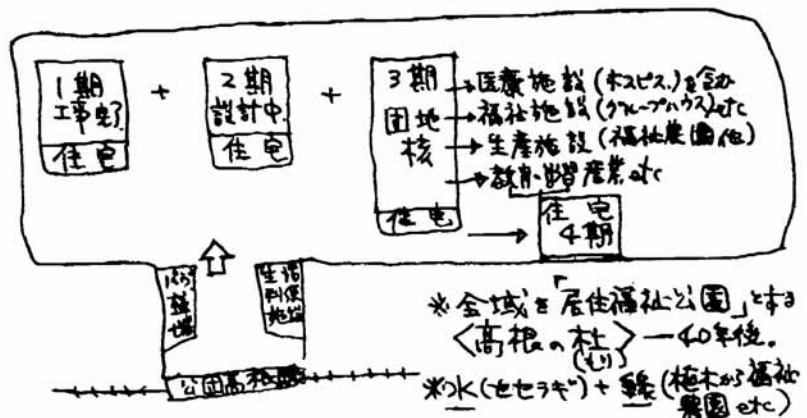 1期
工事完了
住宅
+
2期
設計中
住宅
+
3期
団地
核
住宅
→医療施設(ホスピス)を含む
→福祉施設(グループハウス)etc
→生産施設(福祉農園他)
→教育・学習産業etc
住宅
4期
生活
利便
施設
公団高根
※全域を「居住福祉公園」とする
〈高根の杜〉—40年後。
(もり)
※水(セセラギ)+緑(植木から福祉
農園etc)